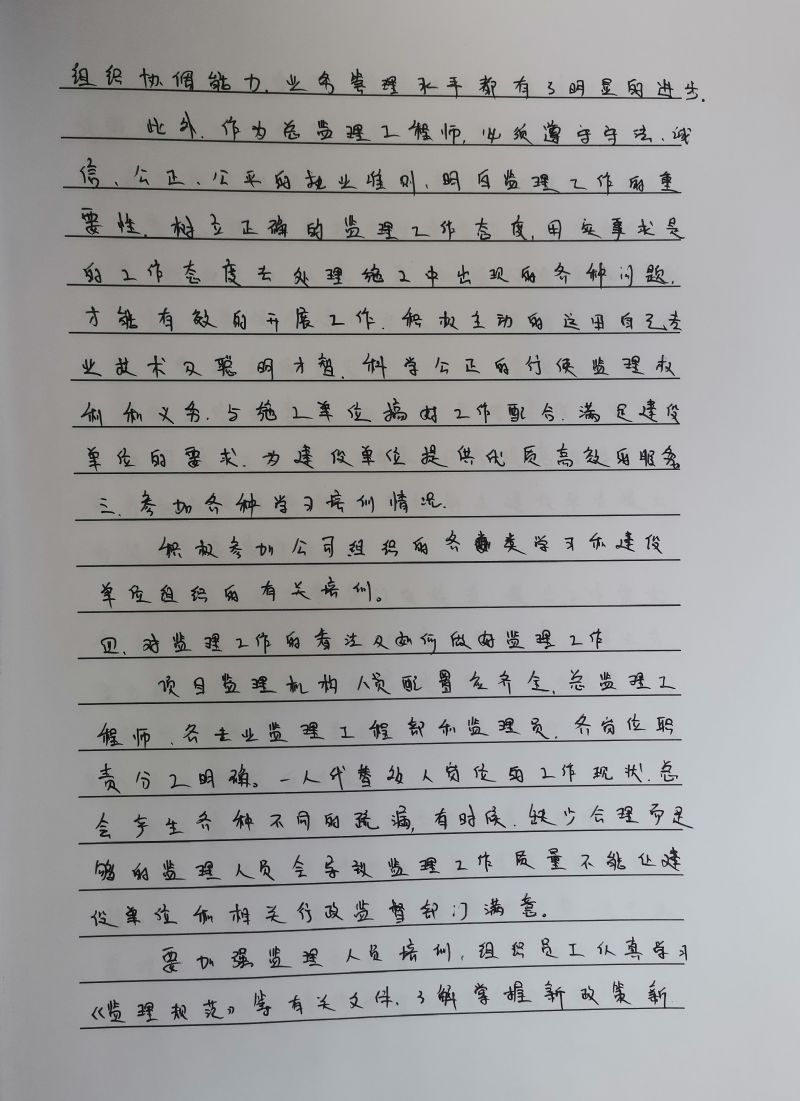 组织协调能力、业务管理水平都有了明显的进步.
此外,作为总监理工程师,必须遵守守法、诚
信、公正、公平的执业准则,明白监理工作的重
要性,树立正确的监理工作态度,用实事求是
的工作态度去处理施工中出现的各种问题,
才能有效的开展工作.积极主动的运用自己专
业技术及聪明才智,科学公正的行使监理权
利和义务,与施工单位搞好工作配合,满足建设
单位的要求,为建设单位提供优质高效的服务
三、参加各种学习培训情况.
积极参加公司组织的各类学习和建设
单位组织的有关培训。
四、对监理工作的看法及如何做好监理工作
项目监理机构人员配置应齐全,总监理工
程师、各专业监理工程部和监理员,各岗位职
责分工明确。一人代替数人岗位的工作现状,总
会产生各种不同的疏漏,有时候,缺少合理而足
够的监理人员会导致监理工作质量不能让建
设单位和相关行政监督部门满意。
要加强监理人员培训,组织员工认真学习
《监理规范》等有关文件,了解掌握新政策新